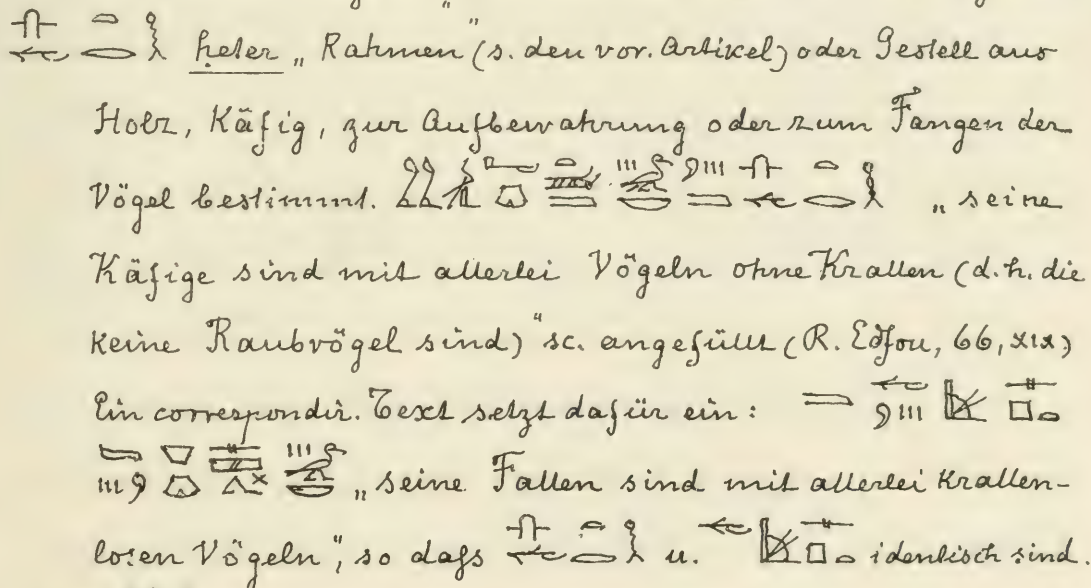 ḥeter „Rahmen (s. den vor. Artikel) oder Gestell aus
Holz, Käfig, zur Aufbewahrung oder zum Fangen der
Vögel bestimmt. „seine
Käfige sind mit allerlei Vögeln ohne Krallen (d. h. die
keine Raubvögel sind)“ sc. angefüllt (R. Edfou, 66, XIX)
Ein correspondir. Text setzt dafür ein:
„seine Fallen sind mit allerlei Krallen-
losen Vögeln“, so daſs u. identisch sind.